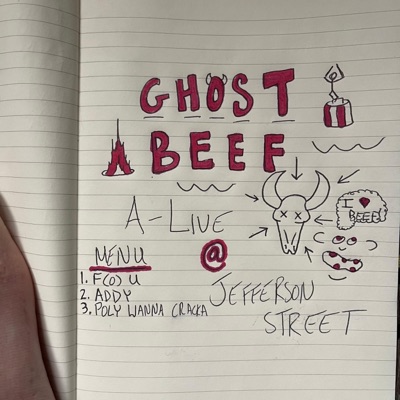 GHOST
BEEF
A-LIVE
I ♥
BEEF
MENU
@
1. F(O) U
2. ADDY
3. POLY WANNA CRACKA
JEFFERSON
STREET